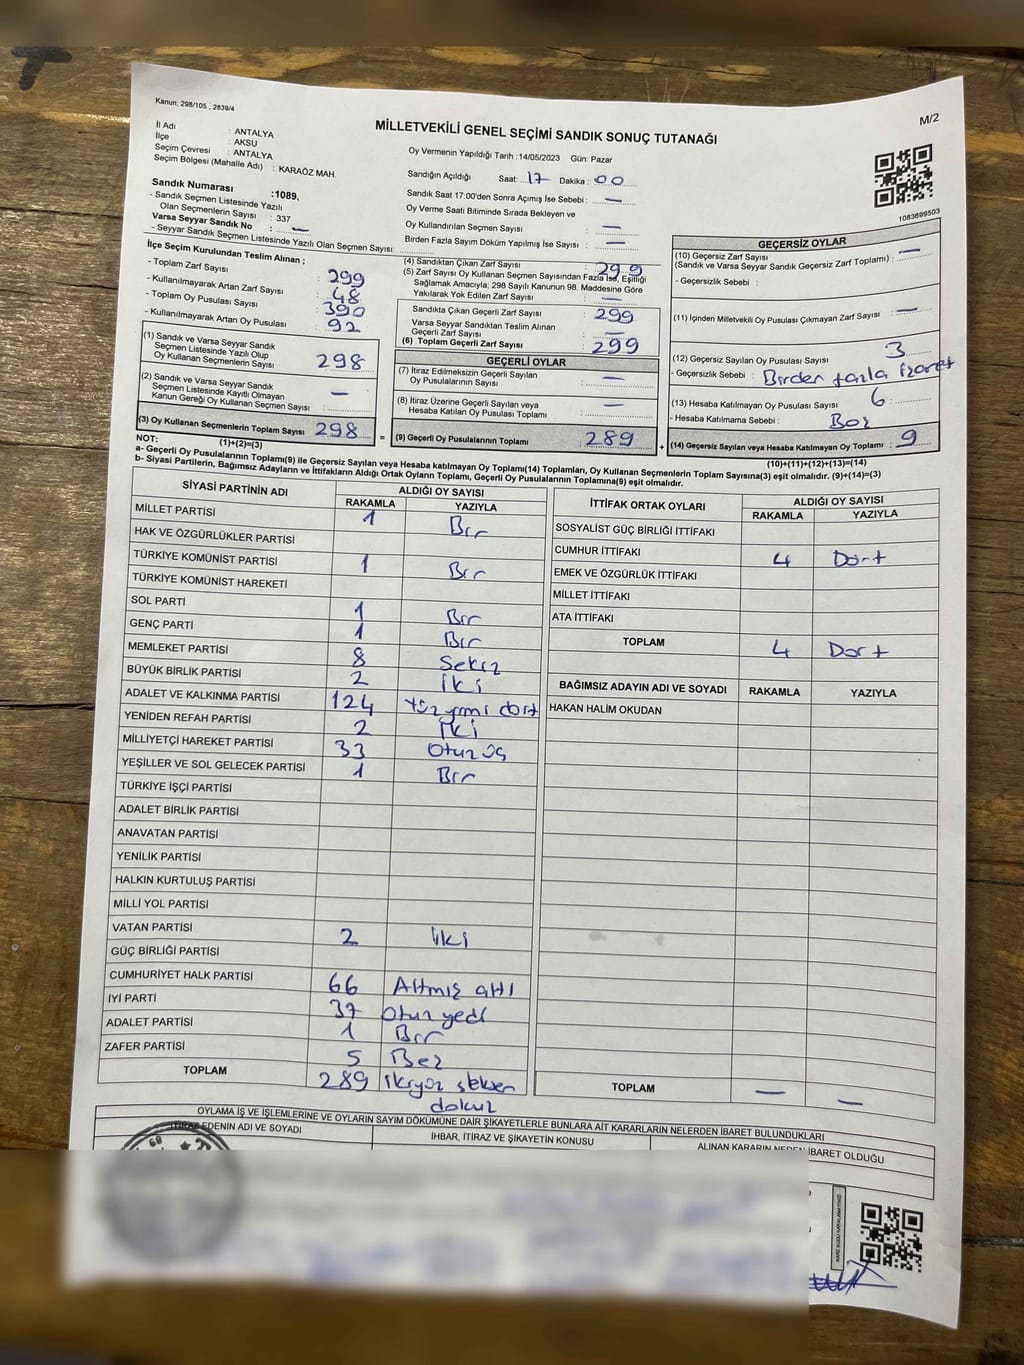 Kanun; 298/105 , 2839/4
M/2
MİLLETVEKİLİ GENEL SEÇİMİ SANDIK SONUÇ TUTANAĞI
İl Adı : ANTALYA
İlçe : AKSU
Seçim Çevresi : ANTALYA
Seçim Bölgesi (Mahalle Adı) : KARAÖZ MAH.
Sandık Numarası :1089,
- Sandık Seçmen Listesinde Yazılı
Olan Seçmenlerin Sayısı : 337
Varsa Seyyar Sandık No : —
- Seyyar Sandık Seçmen Listesinde Yazılı Olan Seçmen Sayısı:
Oy Vermenin Yapıldığı Tarih :14/05/2023 Gün: Pazar
Sandığın Açıldığı Saat: 17 Dakika : 00
Sandık Saat 17:00'den Sonra Açımış İse Sebebi : —
Oy Verme Saati Bitiminde Sırada Bekleyen ve
Oy Kullandırılan Seçmen Sayısı : —
Birden Fazla Sayım Döküm Yapılmış İse Sayısı : —
1083699503
İlçe Seçim Kurulundan Teslim Alınan ;
- Toplam Zarf Sayısı : 299
- Kullanılmayarak Artan Zarf Sayısı : 48
- Toplam Oy Pusulası Sayısı : 390
- Kullanılmayarak Artan Oy Pusulası : 92
(1) Sandık ve Varsa Seyyar Sandık
Seçmen Listesinde Yazılı Olup
Oy Kullanan Seçmenlerin Sayısı : 298
(2) Sandık ve Varsa Seyyar Sandık
Seçmen Listesinde Kayıtlı Olmayan
Kanun Gereği Oy Kullanan Seçmen Sayısı : —
(3) Oy Kullanan Seçmenlerin Toplam Sayısı : 298
(4) Sandıktan Çıkan Zarf Sayısı : 299
(5) Zarf Sayısı Oy Kullanan Seçmen Sayısından Fazla İse, Eşitliği
Sağlamak Amacıyla; 298 Sayılı Kanunun 98. Maddesine Göre
Yakılarak Yok Edilen Zarf Sayısı : —
Sandıkta Çıkan Geçerli Zarf Sayısı : 299
Varsa Seyyar Sandıktan Teslim Alınan
Geçerli Zarf Sayısı : —
(6) Toplam Geçerli Zarf Sayısı : 299
GEÇERLİ OYLAR
(7) İtiraz Edilmeksizin Geçerli Sayılan
Oy Pusulalarının Sayısı : —
(8) İtiraz Üzerine Geçerli Sayılan veya
Hesaba Katılan Oy Pusulası Toplamı : —
= (9) Geçerli Oy Pusulalarının Toplamı : 289
GEÇERSİZ OYLAR
(10) Geçersiz Zarf Sayısı —
(Sandık ve Varsa Seyyar Sandık Geçersiz Zarf Toplamı) :
- Geçersizlik Sebebi :
(11) İçinden Milletvekili Oy Pusulası Çıkmayan Zarf Sayısı : —
(12) Geçersiz Sayılan Oy Pusulası Sayısı : 3
- Geçersizlik Sebebi : Birden fazla işaret
(13) Hesaba Katılmayan Oy Pusulası Sayısı : 6
- Hesaba Katılmama Sebebi : Boş
+ (14) Geçersiz Sayılan veya Hesaba Katılmayan Oy Toplamı : 9
NOT: (1)+(2)=(3)
(10)+(11)+(12)+(13)=(14)
a- Geçerli Oy Pusulalarının Toplamı(9) ile Geçersiz Sayılan veya Hesaba katılmayan Oy Toplamı(14) Toplamları, Oy Kullanan Seçmenlerin Toplam Sayısına(3) eşit olmalıdır. (9)+(14)=(3)
b- Siyasi Partilerin, Bağımsız Adayların ve İttifakların Aldığı Ortak Oyların Toplamı, Geçerli Oy Pusulalarının Toplamına(9) eşit olmalıdır.
SİYASİ PARTİNİN ADI ALDIĞI OY SAYISI
RAKAMLA YAZIYLA
MİLLET PARTİSİ 1 Bir
HAK VE ÖZGÜRLÜKLER PARTİSİ
TÜRKİYE KOMÜNİST PARTİSİ 1 Bir
TÜRKİYE KOMÜNİST HAREKETİ
SOL PARTİ 1 Bir
GENÇ PARTİ 1 Bir
MEMLEKET PARTİSİ 8 Sekiz
BÜYÜK BİRLİK PARTİSİ 2 iki
ADALET VE KALKINMA PARTİSİ 124 Yüz yirmi dört
YENİDEN REFAH PARTİSİ 2 İki
MİLLİYETÇİ HAREKET PARTİSİ 33 Otuz üç
YEŞİLLER VE SOL GELECEK PARTİSİ 1 Bir
TÜRKİYE İŞÇİ PARTİSİ
ADALET BİRLİK PARTİSİ
ANAVATAN PARTİSİ
YENİLİK PARTİSİ
HALKIN KURTULUŞ PARTİSİ
MİLLİ YOL PARTİSİ
VATAN PARTİSİ 2 İki
GÜÇ BİRLİĞİ PARTİSİ
CUMHURİYET HALK PARTİSİ 66 Altmış altı
İYİ PARTİ 37 Otuz yedi
ADALET PARTİSİ 1 Bir
ZAFER PARTİSİ 5 Beş
TOPLAM 289 ikiyüz seksen
dokuz
İTTİFAK ORTAK OYLARI ALDIĞI OY SAYISI
RAKAMLA YAZIYLA
SOSYALİST GÜÇ BİRLİĞİ İTTİFAKI
CUMHUR İTTİFAKI 4 Dört
EMEK VE ÖZGÜRLÜK İTTİFAKI
MİLLET İTTİFAKI
ATA İTTİFAKI
TOPLAM 4 Dört
BAĞIMSIZ ADAYIN ADI VE SOYADI RAKAMLA YAZIYLA
HAKAN HALİM OKUDAN
TOPLAM — —
OYLAMA İŞ VE İŞLEMLERİNE VE OYLARIN SAYIM DÖKÜMÜNE DAİR ŞİKAYETLERLE BUNLARA AİT KARARLARIN NELERDEN İBARET BULUNDUKLARI
İTİRAZ EDENİN ADI VE SOYADI İHBAR, İTİRAZ VE ŞİKAYETİN KONUSU ALINAN KARARIN NEDEN İBARET OLDUĞU